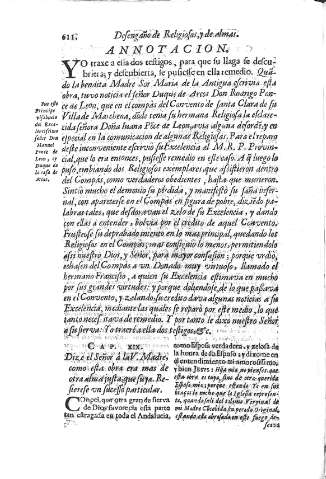 611. Desengaño de Religiosos, y de Almas.
ANNOTACION.
YO traxe a ella dos testigos, para que su llaga se descubrietra; y descubierta, le pusiesse en ella remedio. Quãdo
la bendita Madre Sor Maria de la Antigua escrivia esta
obra, tuvo noticia el señor Duque de Arcos Don Rodrigo Ponce
de Leon, que en el compàs del Convento de santa Clara de su
Villa de Marchena, dõde tenia su hermana Religiosa la esclarecida
señora Doña Juana Põce de Leon, avia alguna
especial en la comunicacion de algunas Religiosas. Para el reparo
deste inconveniente escrivio su Excelencia al M.R.P. Provincial,
que lo era entonces, pusiesse remedio en este caso. A q̃ luego lo
puso, embiando dos Religiosos exemplares, que assistieron dentro
del Compàs, como verdaderos obedientes, hasta que murieron.
Sintió mucho el demonio su pérdida, y manifestò su saña infernal,
con aparecerse en el Compàs en figura de pobre, dizĩedo palabras
tales, que desdoravan el zelo de su Excelencia, y dando
con ellas a entender, bolvia por el crèdito de aquel Convento.
Frustrose su depravado intento en lo mas principal, quedando los
Religiosos en el Compàs; mas consiguio lo menos, permitiendolo
assi nuestro Dios, y Señor, para mayor confusion; porque
echassen del Compàs a un Donado muy virtuoso, llamado el
hermano Francisco, a quien su Excelencia estimaria en mucho
por sus grandes virtudes: y porque doliendose, de lo que passava
en el Convento, y zelando su crèdito dava algunas noticias a su
Excelencia, mediante las quales se reparò por este medio, lo que
tanto necessitava de remedio. Y por tanto le dixo nuestro Señor,
a su sierva: Yo traerè a ella dos testigos, &c.
Por este
Principe
Excelentissimo
señor Don
Manuel
Ponce de
Leon, y
Duque de
la casa de
Arcos.
CAP. XIX.
Dize el Señor à la V. Madre,
como esta obra era mas de
otra alma justa que suya. Refierese
un sucesso particular.
COngel, que otra gran de sierva
de Dios favorecia esta parte
tan estragada en toda el Andaluzia,
como Esposa verdadera, y zelosa de
la honra de su Esposo; y dixome en
el entendimiento mi amorosissimo,
y bien Jesus: Hija mia, no pienses que
esta obra es tuya, sino de otra querida
Esposa mia; porque estando Yo en
que la Iglesia representa,
quando salì del talamo Virginal de
mi Madre Cõcebida sin pecado Original,
estando ella abrasada en este fuego, de-
seava